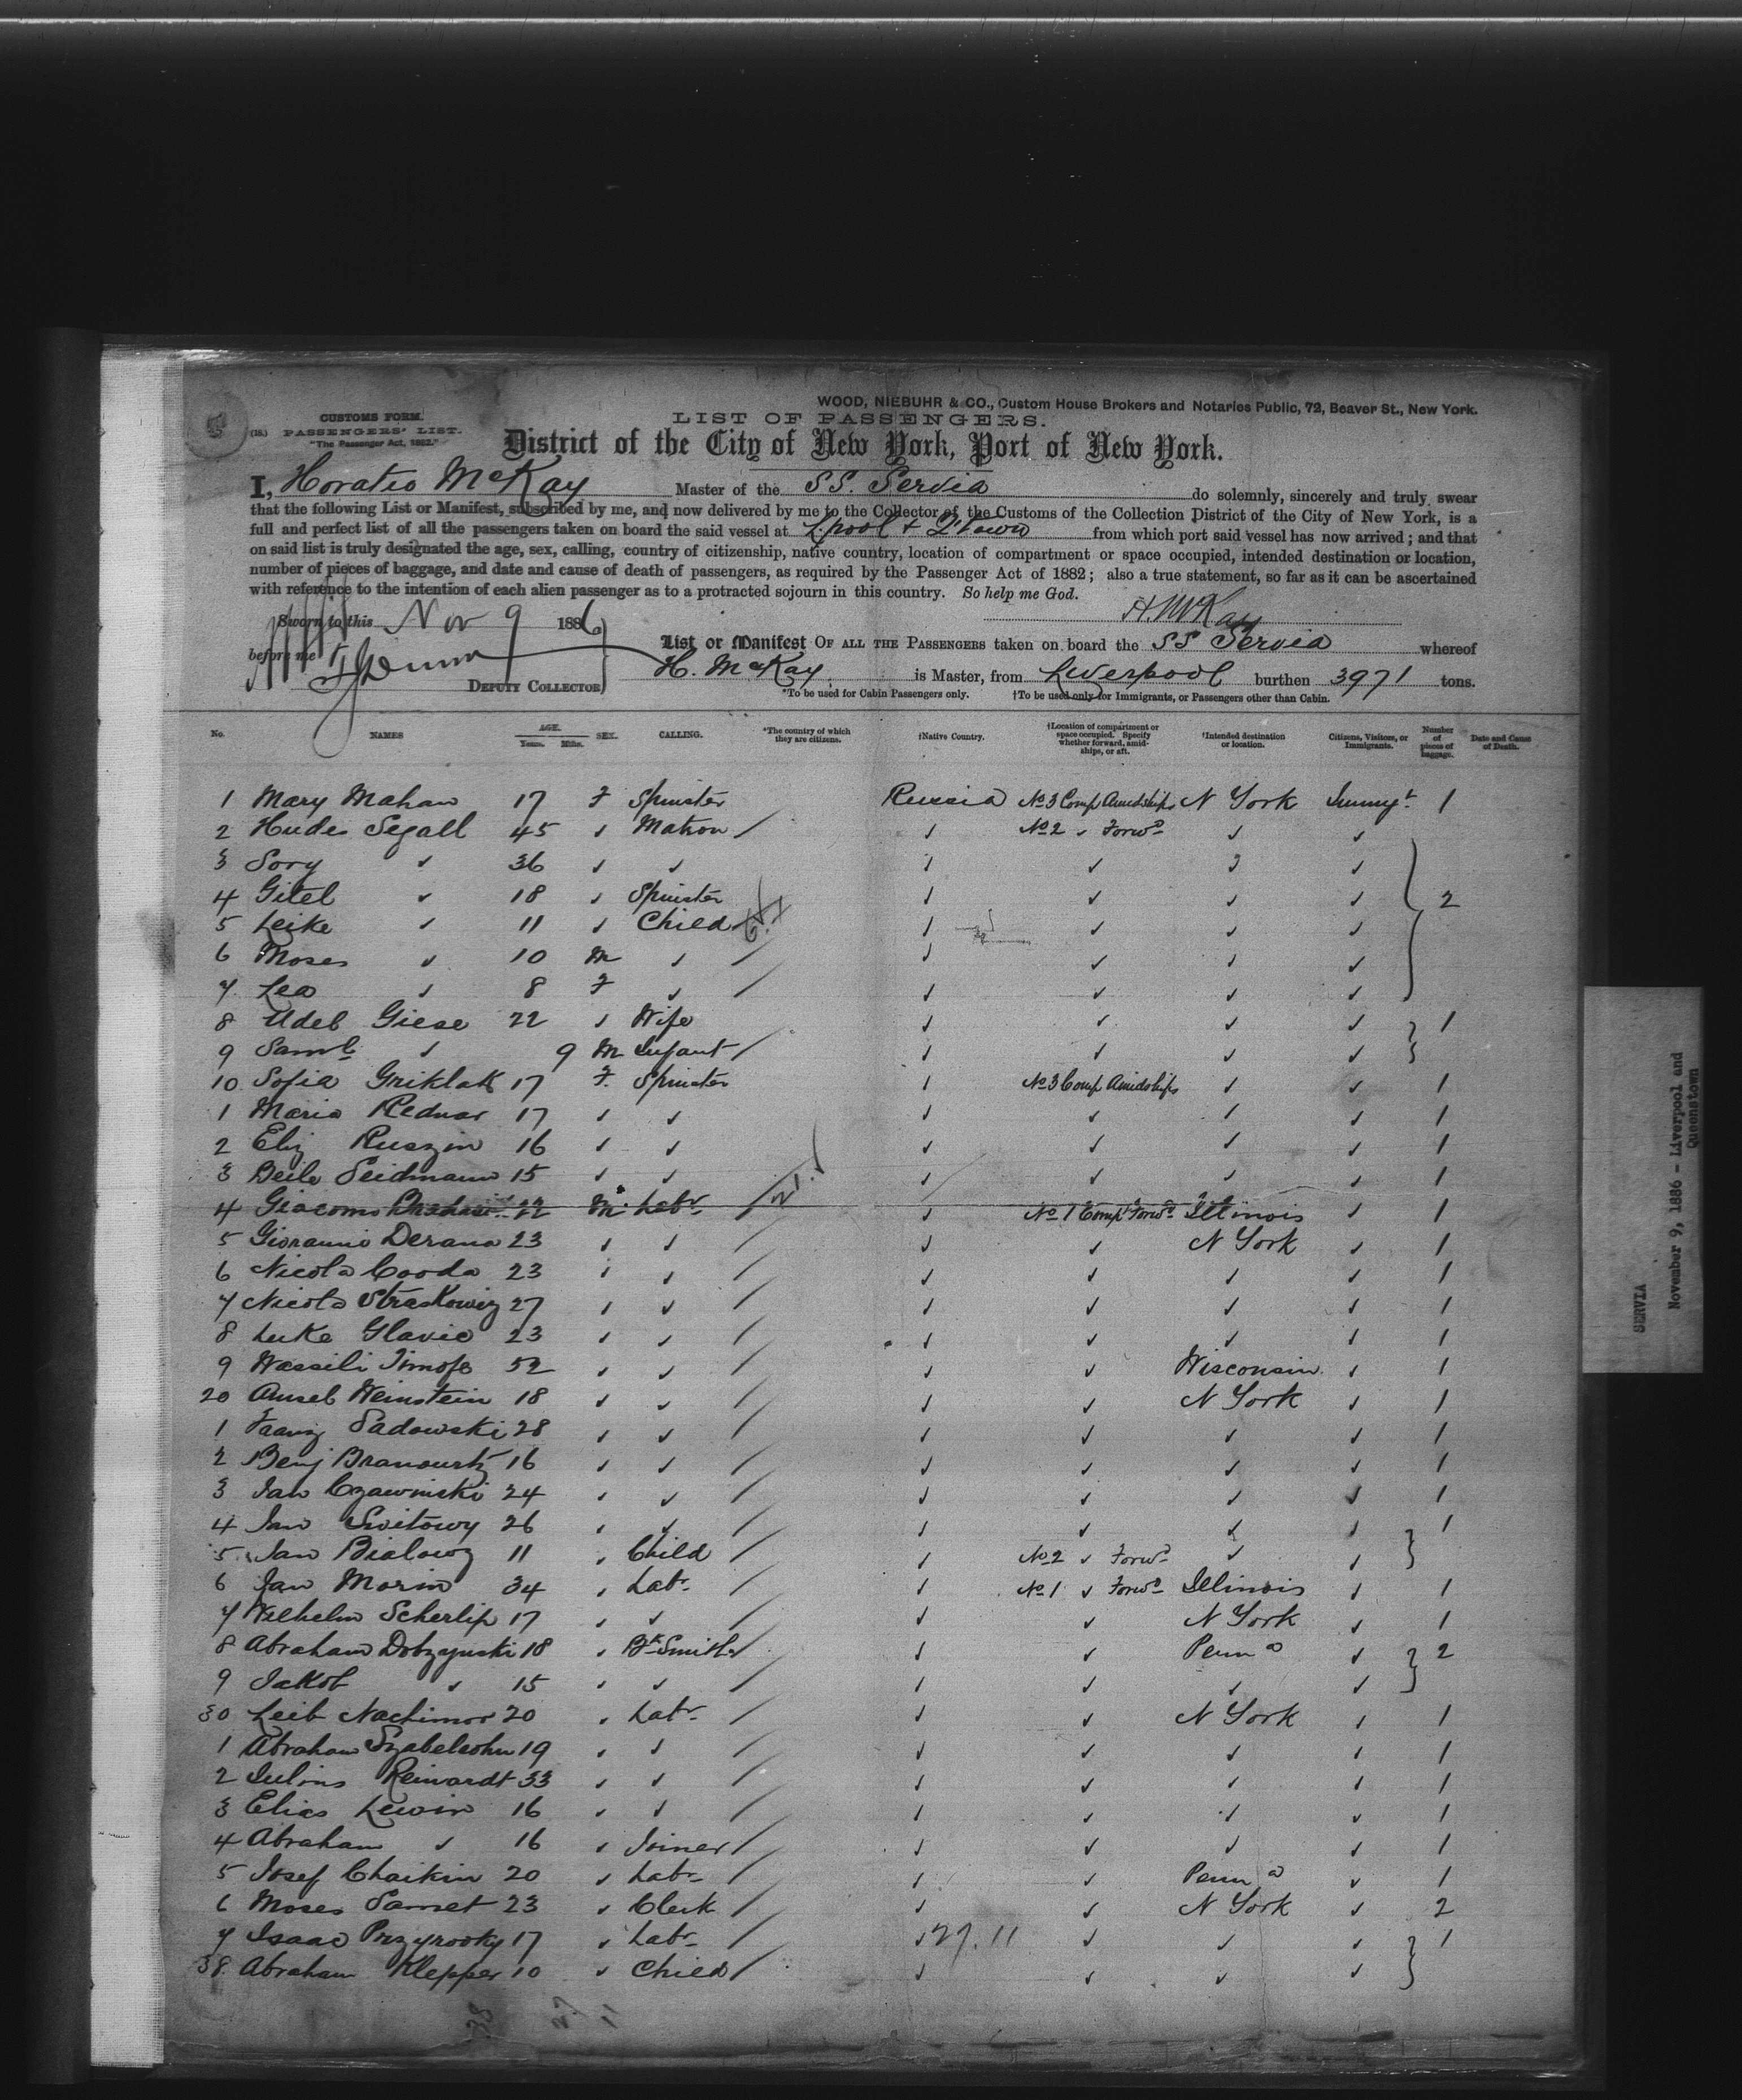 WOOD, NIEBUHR & CO., Custom House Brokers and Notaries Public, 72, Beaver St., New York.
CUSTOMS FORM.
(18.) PASSENGERS' LIST.
"The Passenger Act, 1882."
LIST OF PASSENGERS.
District of the City of New York, Port of New York.
I, Horatio McKay Master of the SS. Servia do solemnly, sincerely and truly swear
that the following List or Manifest, subscribed by me, and now delivered by me to the Collector of the Customs of the Collection District of the City of New York, is a
full and perfect list of all the passengers taken on board the said vessel at L.pool & Q'town from which port said vessel has now arrived; and that
on said list is truly designated the age, sex, calling, country of citizenship, native country, location of compartment or space occupied, intended destination or location,
number of pieces of baggage, and date and cause of death of passengers, as required by the Passenger Act of 1882; also a true statement, so far as it can be ascertained
with reference to the intention of each alien passenger as to a protracted sojourn in this country. So help me God.
H. McKay
Sworn to this Nov 9 1886
before me
DEPUTY COLLECTOR
List or Manifest OF ALL THE PASSENGERS taken on board the SS Servia whereof
H. McKay is Master, from Liverpool burthen 3971 tons.
*To be used for Cabin Passengers only. †To be used only for Immigrants, or Passengers other than Cabin.
No. NAMES AGE. Years. Mths. SEX. CALLING. *The country of which they are citizens. †Native Country. †Location of compartment or space occupied. Specify whether forward, amidships, or aft. †Intended destination or location. Citizens, Visitors, or Immigrants. Number of pieces of baggage. Date and Cause of Death.
1 Mary Mahan 17 F Spinster Russia No 3 Comp Amidships N York 1
2 Hudes Segall 45 ✓ Matron ✓ No 2 ✓ Forwd ✓ ✓
3 Sory ✓ 36 ✓ ✓ ✓ ✓ ✓ ✓
4 Gitel ✓ 18 ✓ Spinster ✓ ✓ ✓ ✓ 2
5 Leike ✓ 11 ✓ Child ✓ ✓ ✓ ✓
6 Moses ✓ 10 M ✓ ✓ ✓ ✓ ✓
7 Lea ✓ 8 F ✓ ✓ ✓ ✓ ✓
8 Udel Giese 22 ✓ Wife ✓ ✓ ✓ ✓ 1
9 Saml ✓ 9 M Infant ✓ ✓ ✓ ✓
10 Sofia Griklak 17 F. Spinster ✓ No 3 Comp Amidships ✓ ✓ 1
1 Maria Rednar 17 ✓ ✓ ✓ ✓ ✓ ✓ 1
2 Eliz Ruszin 16 ✓ ✓ ✓ ✓ ✓ ✓ 1
3 Beile Seidmann 15 ✓ ✓ ✓ ✓ ✓ ✓ 1
4 Giacomo 22 M Labr ✓ No 1 Comp Forwd Illinois ✓ 1
5 Giovanni Derana 23 ✓ ✓ ✓ ✓ N York ✓ 1
6 Nicola Cooda 23 ✓ ✓ ✓ ✓ ✓ ✓ 1
7 Nicola Straskowiz 27 ✓ ✓ ✓ ✓ ✓ ✓ 1
8 Luke Glavic 23 ✓ ✓ ✓ ✓ ✓ ✓ 1
9 Wassili Timofe 52 ✓ ✓ ✓ ✓ Wisconsin ✓ 1
20 Amsel Weinstein 18 ✓ ✓ ✓ ✓ N York ✓ 1
1 Franz Sadowski 28 ✓ ✓ ✓ ✓ ✓ ✓ 1
2 Benj 16 ✓ ✓ ✓ ✓ ✓ ✓ 1
3 Jan Czawinski 24 ✓ ✓ ✓ ✓ ✓ ✓ 1
4 Jan Switowy 26 ✓ ✓ ✓ ✓ ✓ ✓ 1
5 Jan Bialowz 11 ✓ Child ✓ No 2 ✓ Forwd ✓ ✓
6 Jan Morin 34 ✓ Labr ✓ No 1 ✓ Forwd Illinois ✓ 1
7 Wilhelm Scherlip 17 ✓ ✓ ✓ ✓ N York ✓ 1
8 Abraham Dobzynski 18 ✓ Bk Smith ✓ ✓ Penna ✓ 2
9 Jakob ✓ 15 ✓ ✓ ✓ ✓ ✓ ✓
30 Leib Nachimor 20 ✓ Labr ✓ ✓ N York ✓ 1
1 Abraham Szabelsohn 19 ✓ ✓ ✓ ✓ ✓ ✓ 1
2 Julius Reinwardt 33 ✓ ✓ ✓ ✓ ✓ ✓ 1
3 Elias Lewin 16 ✓ ✓ ✓ ✓ ✓ ✓ 1
4 Abraham ✓ 16 ✓ Joiner ✓ ✓ ✓ ✓ 1
5 Josef Chaikin 20 ✓ Labr ✓ ✓ Penna ✓ 1
6 Moses Samet 23 ✓ Clerk ✓ ✓ N York ✓ 2
7 Isaac Przyrooky 17 ✓ Labr ✓ 27.11 ✓ ✓ ✓ 1
38. Abraham Klepper 10 ✓ Child ✓ ✓ ✓ ✓
38 27 11
SERVIA
November 9, 1886 - Liverpool and
Queenstown